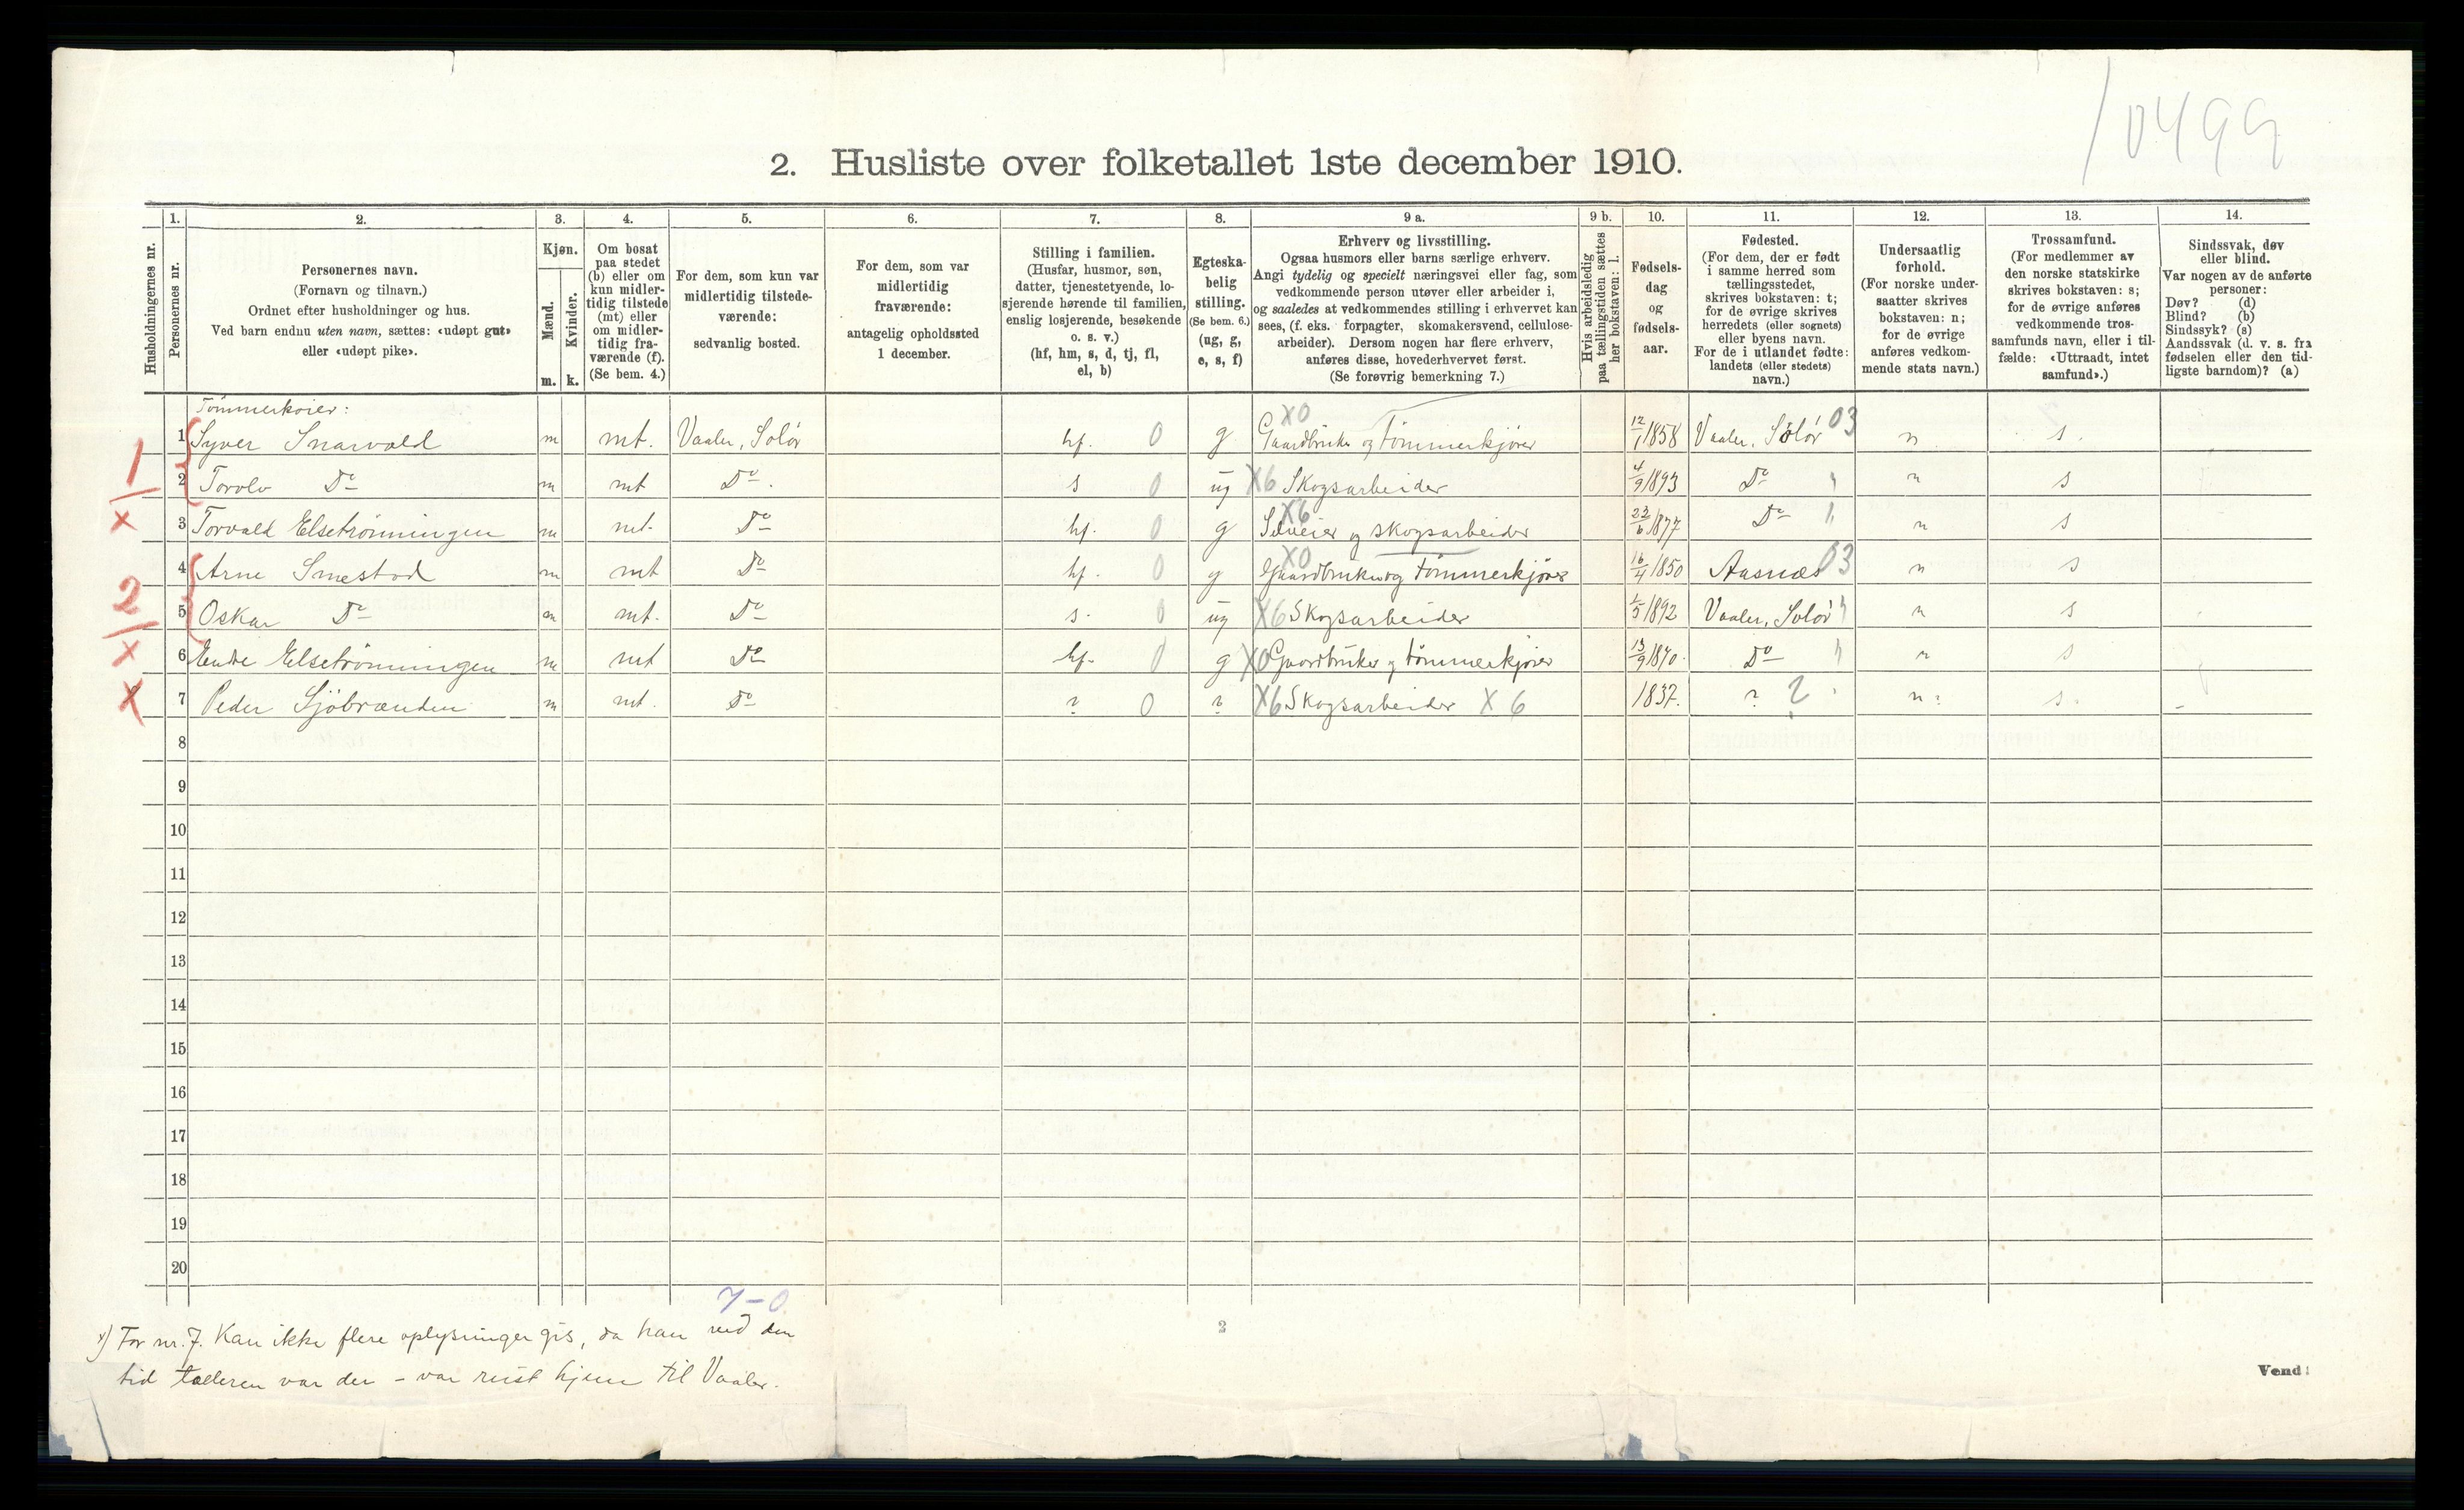 10499
2. Husliste over folketallet 1ste december 1910.
Husholdningernes nr.
1.
Personernes nr.
2.
Personernes navn.
(Fornavn og tilnavn.)
Ordnet efter husholdninger og hus.
Ved barn endnu uten navn, sættes: «udøpt gut»
eller «udøpt pike».
3.
Kjøn.
Mænd.
Kvinder.
m. k.
4.
Om bosat
paa stedet
(b) eller om
kun midler-
tidig tilstede
(mt) eller
om midler-
tidig fra-
værende (f).
(Se bem. 4.)
5.
For dem, som kun var
midlertidig tilstede-
værende:
sedvanlig bosted.
6.
For dem, som var
midlertidig
fraværende:
antagelig opholdssted
1 december.
7.
Stilling i familien.
(Husfar, husmor, søn,
datter, tjenestetyende, lo-
sjerende hørende til familien,
enslig losjerende, besøkende
o. s. v.)
(hf, hm, s, d, tj, fl,
el, b)
8.
Egteska-
belig
stilling.
(Se bem. 6.)
(ug, g,
e, s, f)
9 a.
Erhverv og livsstilling.
Ogsaa husmors eller barns særlige erhverv.
Angi tydelig og specielt næringsvei eller fag, som
vedkommende person utøver eller arbeider i,
og saaledes at vedkommendes stilling i erhvervet kan
sees, (f. eks. forpagter, skomakersvend, cellulose-
arbeider). Dersom nogen har flere erhverv,
anføres disse, hovederhvervet først.
(Se forøvrig bemerkning 7.)
9 b.
Hvis arbeidsledig
paa tællingstiden sættes
her bokstaven: l.
10.
Fødsels-
dag
og
fødsels-
aar.
11.
Fødested.
(For dem, der er født
i samme herred som
tællingsstedet,
skrives bokstaven: t;
for de øvrige skrives
herredets (eller sognets)
eller byens navn.
For de i utlandet fødte:
landets (eller stedets)
navn.)
12.
Undersaatlig
forhold.
(For norske under-
saatter skrives
bokstaven: n;
for de øvrige
anføres vedkom-
mende stats navn.)
13.
Trossamfund.
(For medlemmer av
den norske statskirke
skrives bokstaven: s;
for de øvrige anføres
vedkommende tros-
samfunds navn, eller i til-
fælde: «Uttraadt, intet
samfund».)
14.
Sindssvak, døv
eller blind.
Var nogen av de anførte
personer:
Døv? (d)
Blind? (b)
Sindssyk? (s)
Aandssvak (d. v. s. fra
fødselen eller den tid-
ligste barndom)? (a)
Tømmerkoier:
1 Syver Snarvold m mt. Vaaler, Solör hf. 0 g X0 Gaardbruker og tömmerkjörer 12/1 1858 Vaaler, Solör 03 n s.
2 Torolv Do m mt Do. s 0 ug X6 Skogsarbeider 4/9 1893 Do n s
3 Torvald Elsetrönningen m mt. Do hf. 0 g X6 Selveier og skogsarbeider 23/6 1877 Do n s
4 Arne Smestad m mt Do hf. 0 g X0 Gaardbruker og tömmerkjörer 16/4 1850 Aasnæs 03 n s
5 Oskar Do m mt. Do s. 0 ug X6 Skogsarbeider 1/5 1892 Vaaler, Solör n s
6 Elsetrönningen m mt Do hf. 0 g X0 Gaardbruker og tömmerkjörer 13/9 1870. Do n s
7 Peder Sjöbrænden m mt. Do ? 0 ? X6 Skogsarbeider X 6 1837. ? ? n? s. -
1
x
2
x
X
8
9
10
11
12
13
14
15
16
17
18
19
20
7-0.
x) For nr. 7. Kan ikke flere oplysninger gis, da han ved den
tid tælleren var der - var reist hjem til Vaaler.
2
Vend!